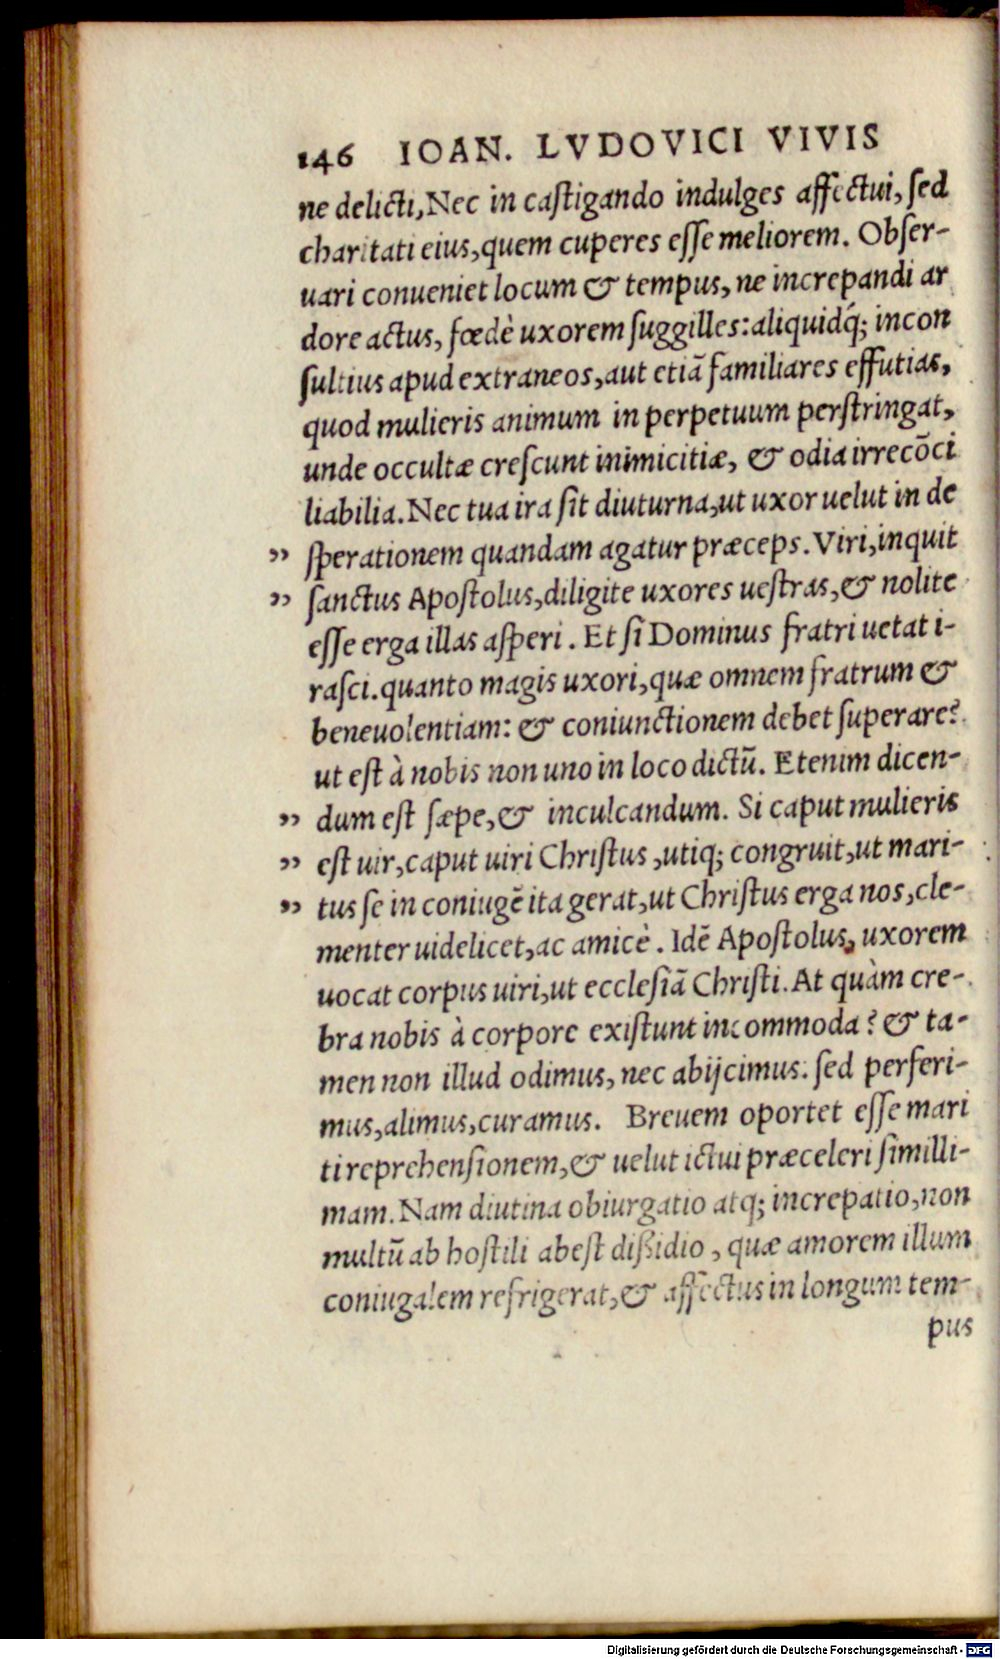 146 IOAN. LVDOVICI VIVIS
ne delicti, Nec in castigando indulges affectui, sed
charitati eius, quem cuperes esse meliorem. Obser-
uari conueniet locum & tempus, ne increpandi ar
dore actus, fœdè uxorem suggilles: aliquidq́; incon
sultius apud extraneos, aut etiã familiares effutias,
quod mulieris animum in perpetuum perstringat,
unde occultæ crescunt inimicitiæ, & odia irrecõci
liabilia. Nec tua ira sit diuturna, ut uxor uelut in de
” sperationem quandam agatur præceps. Viri, inquit
” sanctus Apostolus, diligite uxores uestras, & nolite
esse erga illas asperi. Et si Dominus fratri uetat i-
rasci. quanto magis uxori, quæ omnem fratrum &
beneuolentiam: & coniunctionem debet superare?
ut est à nobis non uno in loco dictũ. Etenim dicen-
” dum est sæpe, & inculcandum. Si caput mulieris
” est uir, caput uiri Christus, utiq; congruit, ut mari-
” tus se in coniugẽ ita gerat, ut Christus erga nos, cle-
menter uidelicet, ac amicè. Idẽ Apostolus, uxorem
uocat corpus uiri, ut ecclesiã Christi. At quàm cre-
bra nobis à corpore existunt incommoda? & ta-
men non illud odimus, nec abijcimus: sed perferi-
mus, alimus, curamus. Breuem oportet esse mari
ti reprehensionem, & uelut ictui præceleri simılli-
mam. Nam diutina obiurgatio atq; increpatio, non
multũ ab hostili abest dißidio, quæ amorem illum
coniugalem refrigerat, & affectus in longum tem-
pus
Digitalisierung gefördert durch die Deutsche Forschungsgemeinschaft - DFG